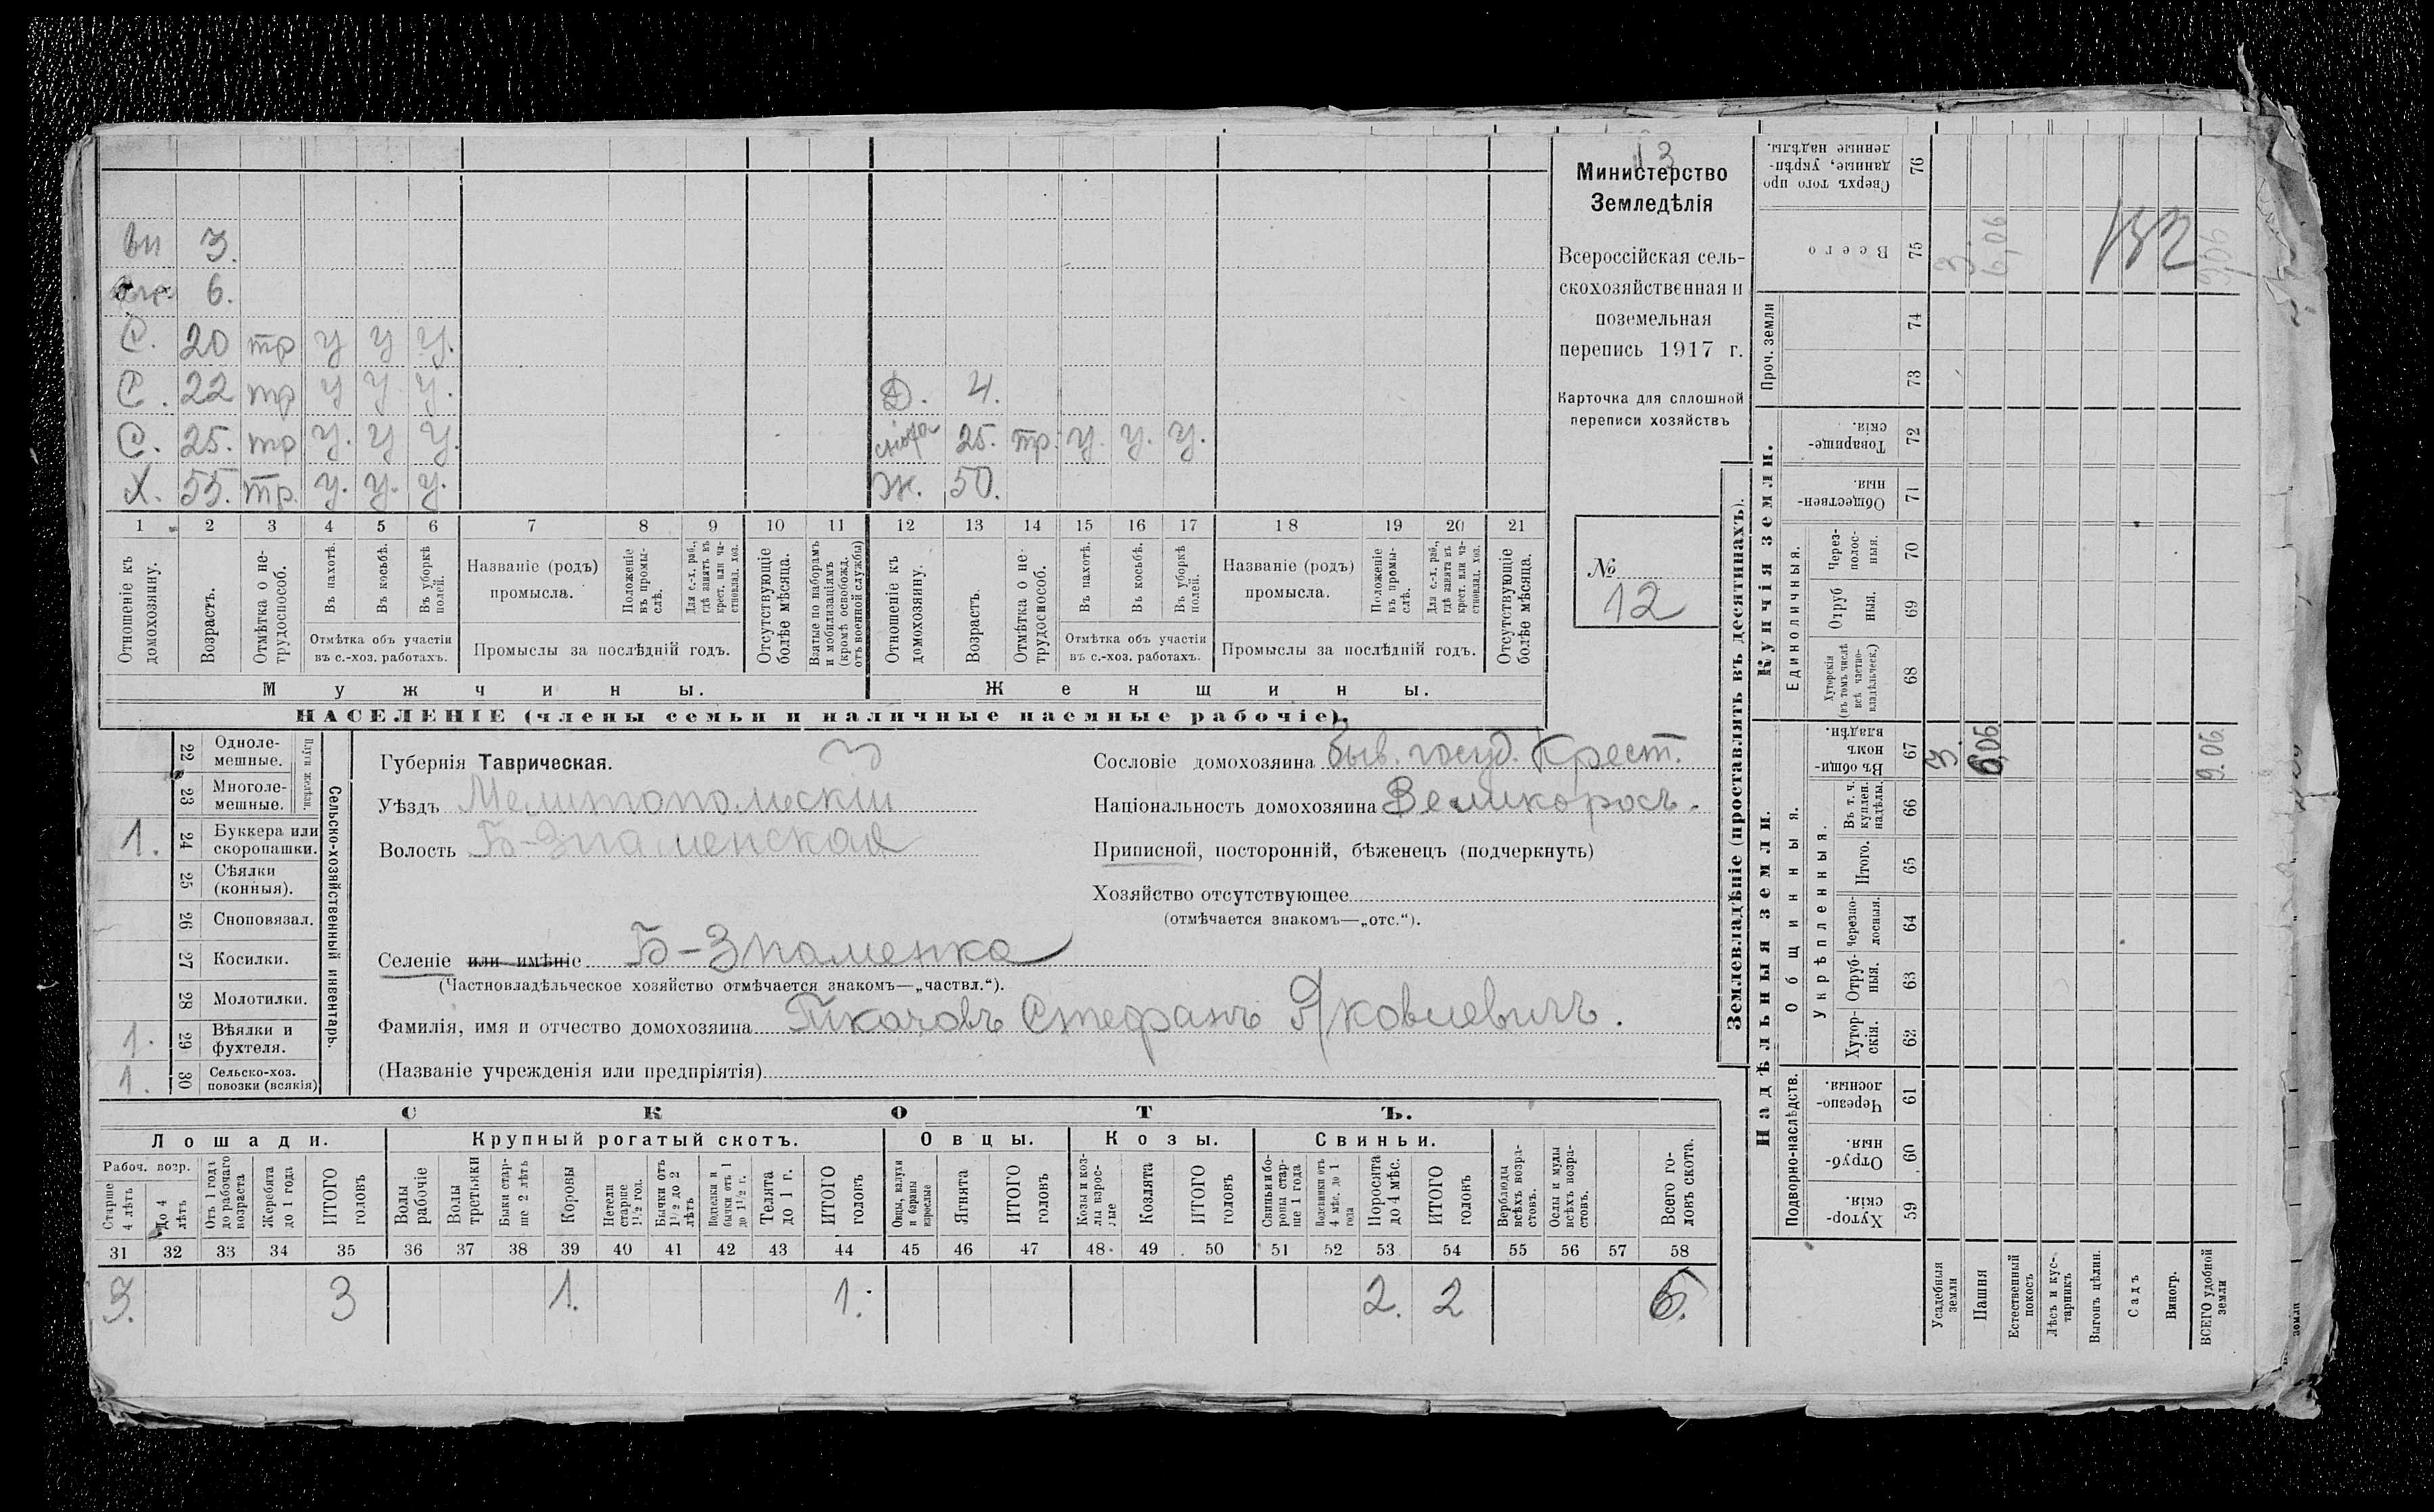 вн 3.
6.
С. 20 тр у у у.
С. 22 тр у у у.
Д. 4.
С. 25. тр у. у у.
25. тр. у. у. у.
Х. 55. тр. у. у. у.
Ж. 50.
1 2 3 4 5 6 7 8 9 10 11 12 13 14 15 16 17 18 19 20 21
Отношеніе къ домохозяину.
Возрастъ.
Отмѣтка о нетрудоспособ.
Въ пахотѣ.
Въ косьбѣ.
Въ уборкѣ полей.
Отмѣтка объ участіи въ с.-хоз. работахъ.
Названіе (родъ) промысла.
Положеніе въ промыслѣ.
Для с.-х. раб., гдѣ занятъ въ крест. или частновлад. хоз.
Промыслы за послѣдній годъ.
Отсутствующіе болѣе мѣсяца.
Взятые по наборамъ и мобилизаціямъ (кромѣ освобожд. отъ военной службы)
Отношеніе къ домохозяину.
Возрастъ.
Отмѣтка о нетрудоспособ.
Въ пахотѣ.
Въ косьбѣ.
Въ уборкѣ полей.
Отмѣтка объ участіи въ с.-хоз. работахъ.
Названіе (родъ) промысла.
Положеніе въ промыслѣ.
Для с.-х. раб., гдѣ занята въ крест. или частновлад. хоз.
Промыслы за послѣдній годъ.
Отсутствующіе болѣе мѣсяца.
Мужчины.
Женщины.
НАСЕЛЕНІЕ (члены семьи и наличные наемные рабочіе).
13
Министерство
Земледѣлія
Всероссійская сель-
скохозяйственная и
поземельная
перепись 1917 г.
Карточка для сплошной
переписи хозяйствъ
№
12
22 Одноле-мешные.
23 Многоле-мешные.
Плуги желѣзн.
1. 24 Буккера или скоропашки.
25 Сѣялки (конныя).
26 Сноповязал.
27 Косилки.
28 Молотилки.
1. 29 Вѣялки и фухтеля.
1. 30 Сельско-хоз. повозки (всякія)
Сельско-хозяйственный инвентарь.
3
Губернія Таврическая.
Уѣздъ Мелитопольскій
Волость Б-Знаменская
Сословіе домохозяина быв. госуд. Крест.
Національность домохозяина Великоросъ.
Приписной, посторонній, бѣженецъ (подчеркнуть)
Хозяйство отсутствующее
(отмѣчается знакомъ—„отс.“).
Селеніе или имѣніе Б-Знаменка
(Частновладѣльческое хозяйство отмѣчается знакомъ—„частвл.“).
Фамилія, имя и отчество домохозяина Ткачовъ Стефанъ Яковлевичъ.
(Названіе учрежденія или предпріятія)
СКОТЪ.
Лошади. Крупный рогатый скотъ. Овцы. Козы. Свиньи.
Рабоч. возр.
Старше 4 лѣтъ
До 4 лѣтъ
Отъ 1 года до рабочаго возраста
Жеребята до 1 года
ИТОГО головъ
Волы рабочіе
Волы третьяки
Быки старше 2 лѣтъ
Коровы
Нетели старше 1½ год.
Бычки отъ 1½ до 2 лѣтъ
бычки отъ 1 до 1½ г.
Телята до 1 г.
ИТОГО головъ
Овцы, валухи и бараны взрослые
Ягнята
ИТОГО головъ
Козы и козлы взрослые
Козлята
ИТОГО головъ
Свиньи и бороны старше 1 года
Подсвинки отъ 4 мѣс. до 1 года
Поросята до 4 мѣс.
ИТОГО головъ
Верблюды всѣхъ возрастовъ.
Ослы и мулы всѣхъ возрастовъ.
Всего головъ скота.
31 32 33 34 35 36 37 38 39 40 41 42 43 44 45 46 47 48 49 50 51 52 53 54 55 56 57 58
3. 3 1. 1. 2. 2 6.
Землевладѣніе (проставлять въ десятинахъ).
Надѣльныя земли.
Купчія земли.
Проч. земли
Подворно-наслѣдств.
Общинныя.
Укрѣпленныя.
Единоличныя.
Сверхъ того проданные, укрѣпленные надѣлы. 76
Всего 75 3. 6,06 9,06
132
74
73
Товарищескія. 72
Общественныя. 71
Черезполосныя. 70
Отрубныя. 69
Хуторскія (въ томъ числѣ всѣ частновладѣльческ.) 68
Въ общинномъ владѣн. 67 3. 6,06 9.06.
Въ т. ч. куплен. надѣлы. 66
Итого. 65
Черезполосныя. 64
Отрубныя. 63
Хуторскія. 62
Черезполосныя. 61
Отрубныя. 60
Хуторскія. 59
Усадебныя земли
Пашня
Естественный покосъ
Лѣсъ и кустарникъ
Выгонъ цѣлин.
Садъ
Виногр.
ВСЕГО удобной земли
земли